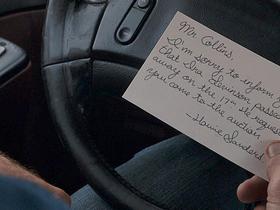 Mr Collins,
I'm sorry to inform
that Ira Levinson passed
away on the 17th He reques
you come to the auction
—Howie Sanders